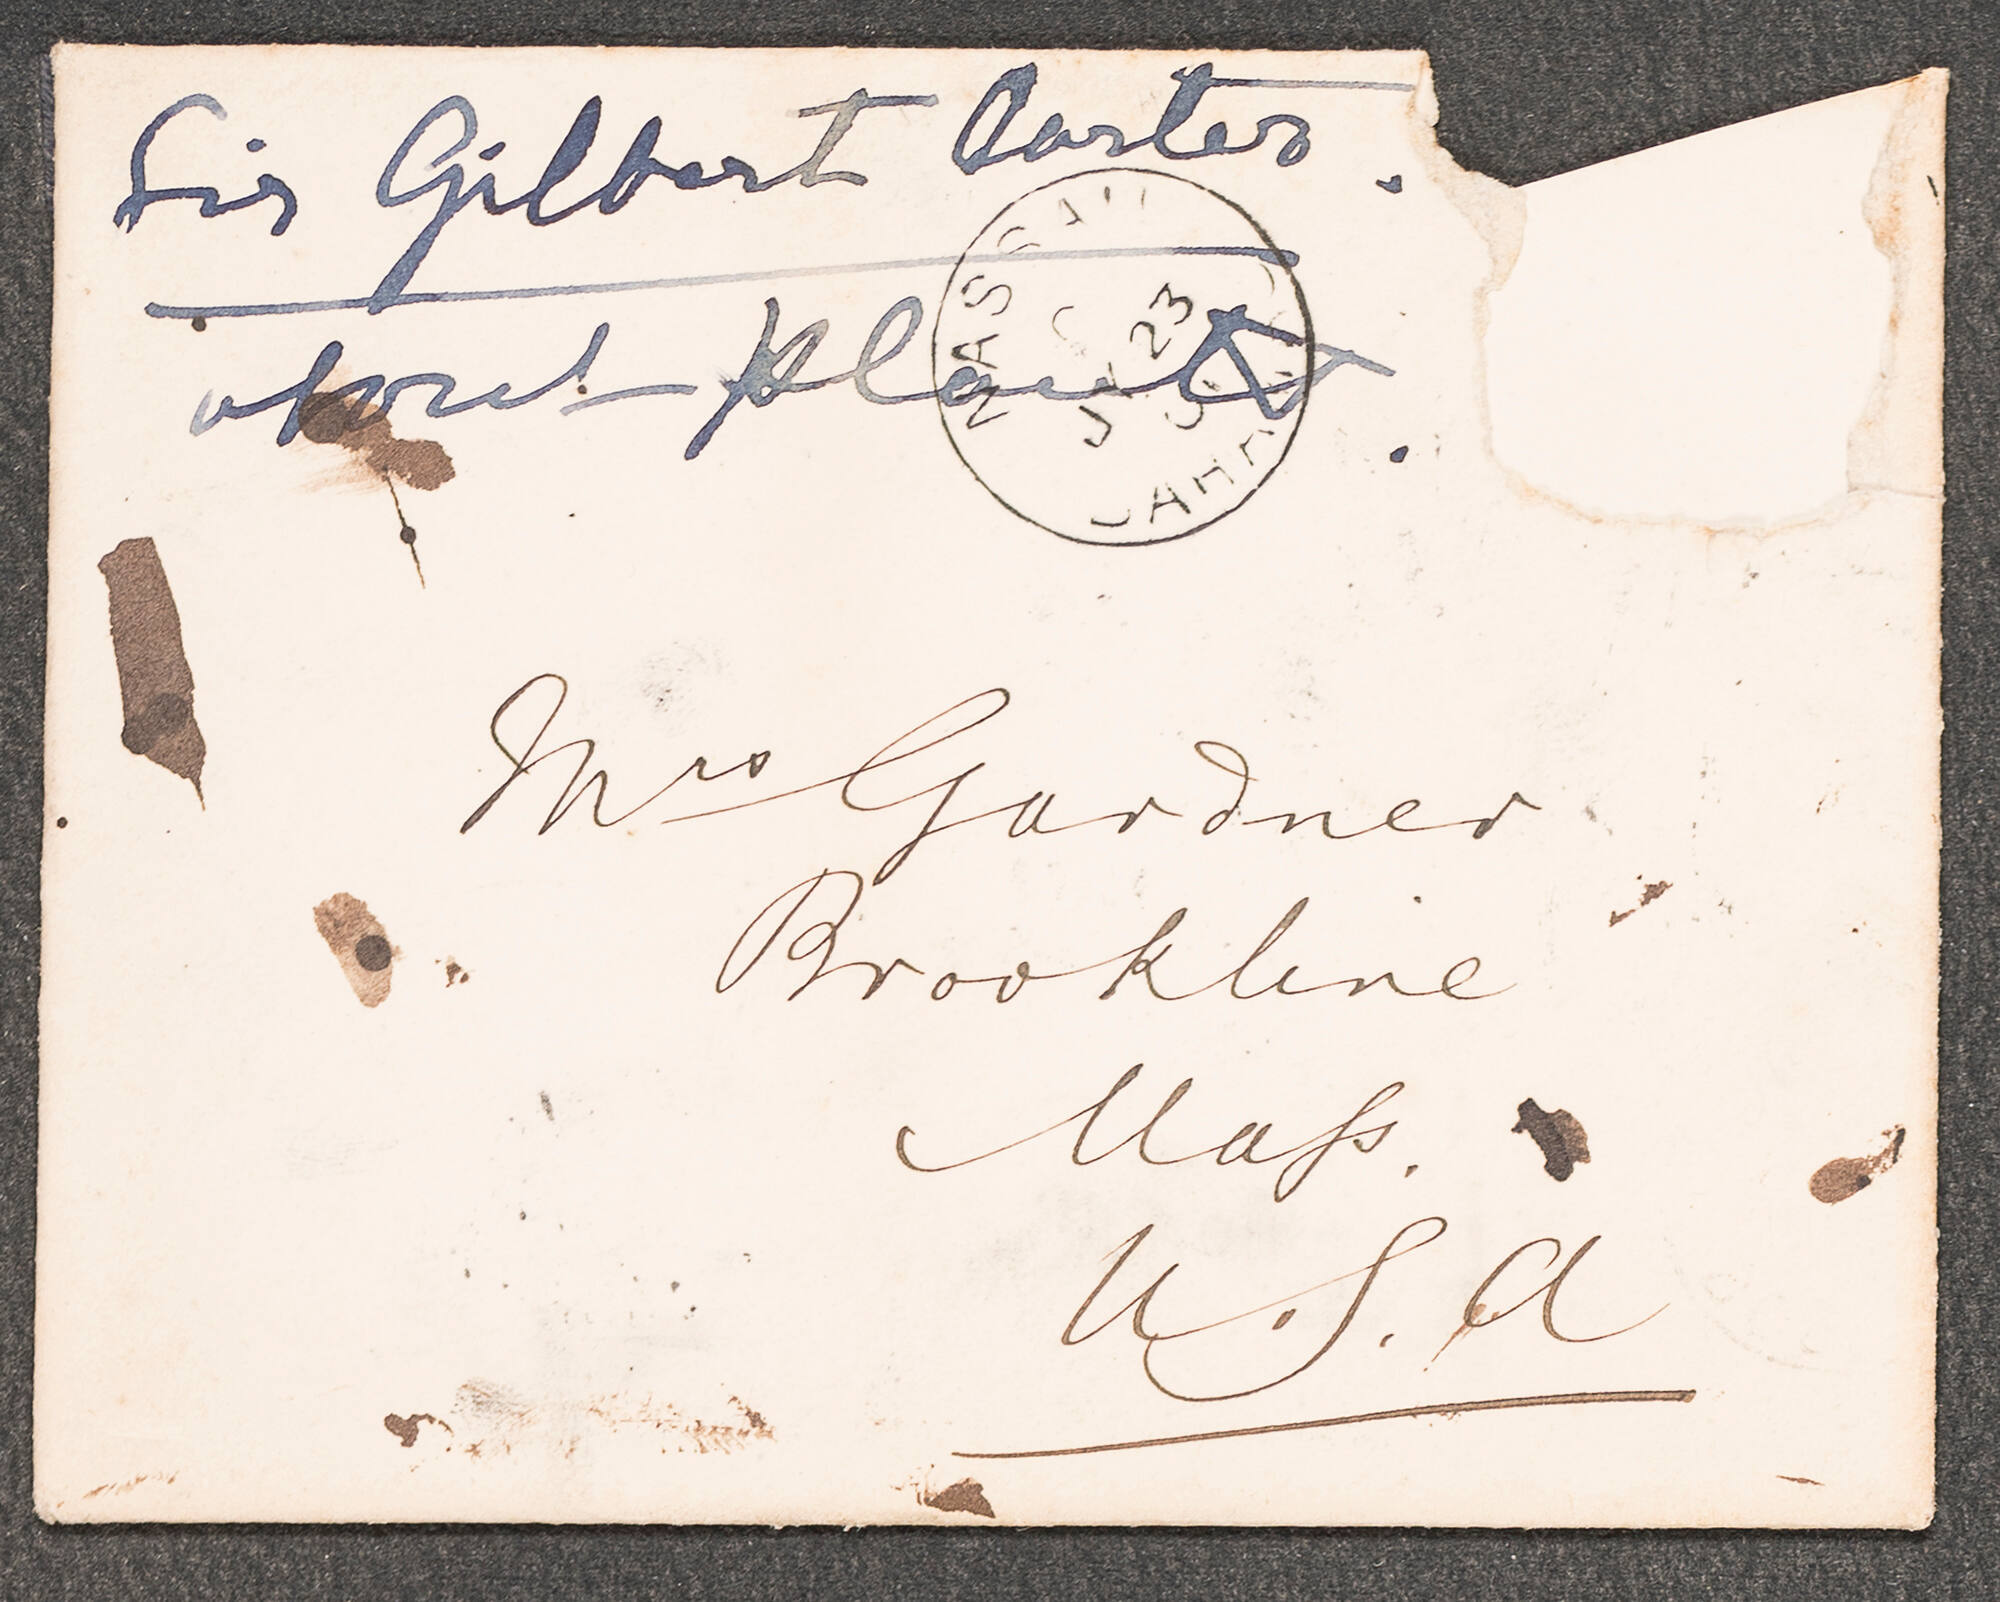 Sir Gilbert Carter.
about plants.
NASSAU
JY 23
BAHAMAS
Mrs Gardner
Brookline
Mass.
U.S.A